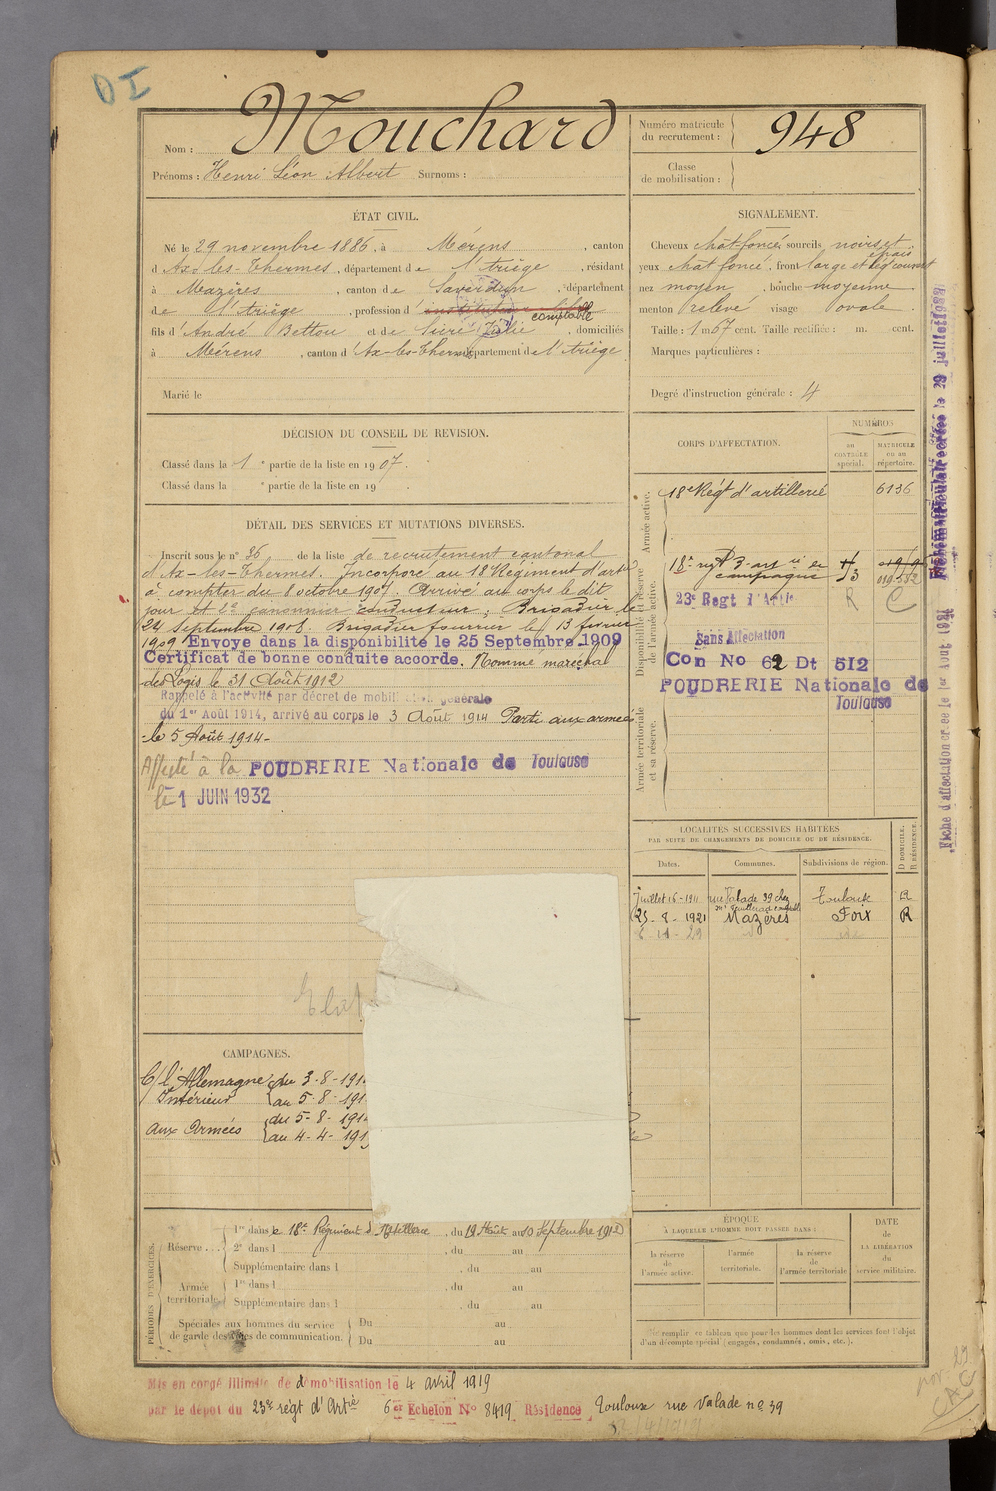 DI
Nom : Mouchard
Prénoms : Henri Léon Albert Surnoms :
Numéro matricule du recrutement : 948
Classe de mobilisation :
ÉTAT CIVIL.
Né le 29 novembre 1886, à Mérens, canton
d'Ax-les-Thermes, département de l'Ariège, résidant
à Mazères, canton de Saverdun, département
de l'Ariège, profession d'instituteur
comptable
fils d'André Bettou et de Sicre Julie, domiciliés
à Mérens, canton d'Ax-les-Thermes, département de l'Ariège
Marié le
SIGNALEMENT.
Cheveux chat. foncé, sourcils noirs et épais
yeux chat foncé, front large et leg' couvert
nez moyen, bouche moyenne
menton relevé visage ovale.
Taille : 1 m 57 cent. Taille rectifiée : m. cent.
Marques particulières :
Degré d'instruction générale : 4
DÉCISION DU CONSEIL DE REVISION.
Classé dans la 1e partie de la liste en 1907.
Classé dans la e partie de la liste en 19
DÉTAIL DES SERVICES ET MUTATIONS DIVERSES.
Inscrit sous le n° 36 de la liste de recrutement cantonal
d'Ax-les-Thermes. Incorporé au 18 Régiment d'artie
à compter du 8 octobre 1907. Arrivé au corps le dit
jour et 2e canonnier conducteur ; Brigadier le
24 Septembre 1908. Brigadier fourrier le 13 février
1909 Envoyé dans la disponibilité le 25 Septembre 1909
Certificat de bonne conduite accordé. Nommé maréchal
des Logis le 31 Août 1912
Rappelé à l'activité par décret de mobilisation générale
du 1er Août 1914, arrivé au corps le 3 Août 1914 Parti aux armées
le 5 Août 1914-
Affecté à la POUDRERIE Nationale de Toulouse
le 1 JUIN 1932
CORPS D'AFFECTATION.
NUMÉROS
au CONTRÔLE spécial.
MATRICULE ou au répertoire.
Armée active.
18e Régt d'artillerie 6136
Disponibilité et réserve de l'armée active.
campagne
23e Regt d'Artie R C
Sans Affectation
Con No 62 Dt 512
POUDRERIE Nationale de
Toulouse
Armée territoriale et sa réserve.
Fiche d'affectation créée le 1er Août 1931
LOCALITÉS SUCCESSIVES HABITÉES
PAR SUITE DE CHANGEMENTS DE DOMICILE OU DE RÉSIDENCE.
Dates. Communes. Subdivisions de région. D DOMICILE. R RÉSIDENCE.
Juillet 16-1911 rue Valade 39 chez Toulouse R
25-8-1921 Mazères Foix R
CAMPAGNES.
C/ l'Allemagne du 3-8-191
Intérieur au 5-8-191
aux Armées du 5-8-191
au 4-4-191
PÉRIODES D'EXERCICES.
Réserve ...
1re dans le 18e Régiment d'Artillerie, du 19 Août au 10 Septembre 1912
2e dans l , du au
Supplémentaire dans l , du au
Armée territoriale
1re dans l , du au
Supplémentaire dans l , du au
Spéciales aux hommes du service de garde des voies de communication.
Du au
Du au
ÉPOQUE
À LAQUELLE L'HOMME DOIT PASSER DANS :
la réserve de l'armée active.
l'armée territoriale.
la réserve de l'armée territoriale
DATE de LA LIBÉRATION du service militaire.
Ne remplir ce tableau que pour les hommes dont les services font l'objet
d'un décompte spécial (engagés, condamnés, omis, etc.).
Mis en congé illimité de démobilisation le 4 avril 1919
par le dépôt du 23e régt d'Artie 6e Echelon No 8419 Résidence Toulouse rue Valade no 39